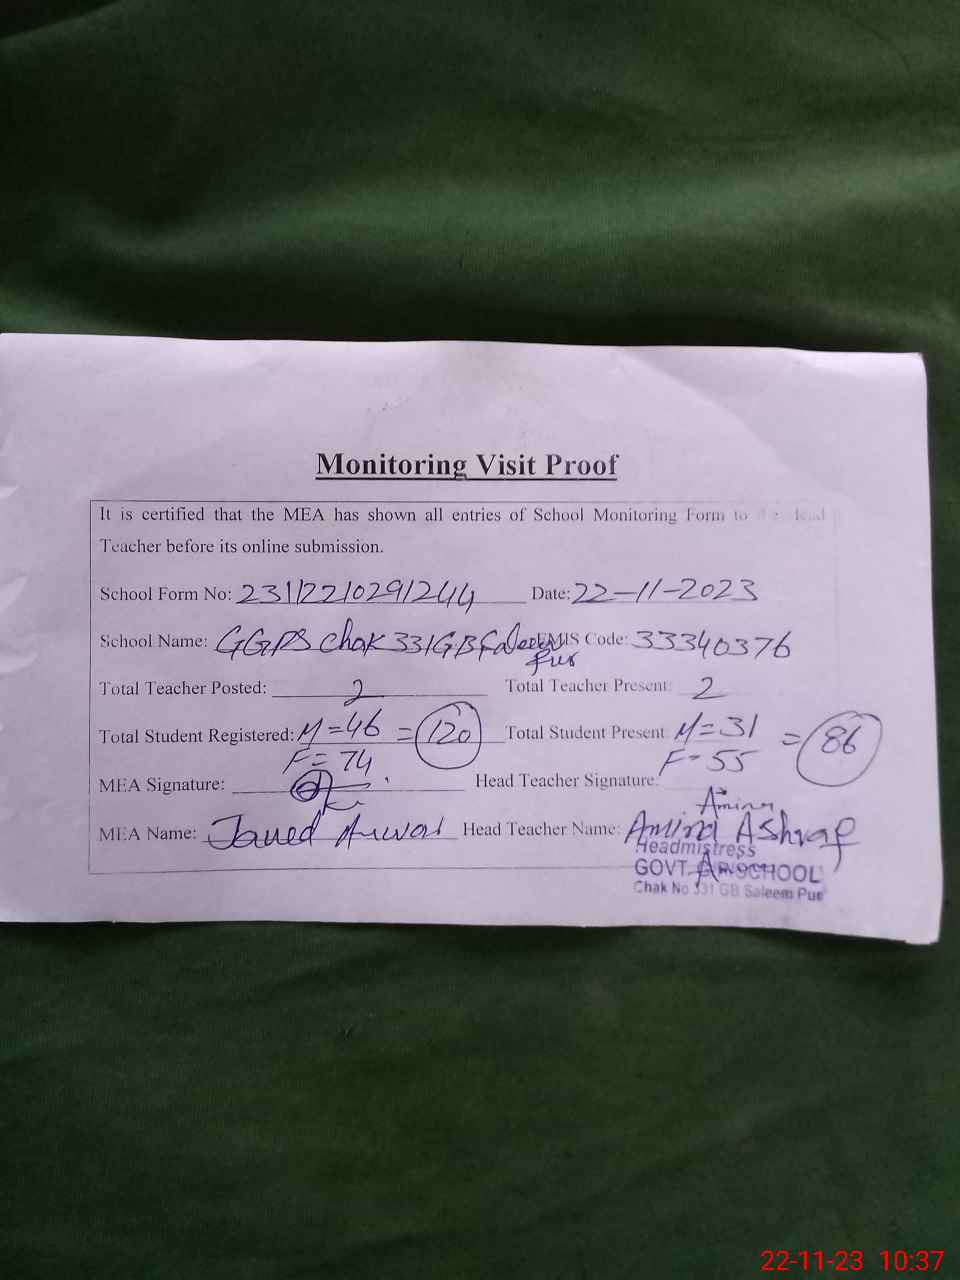 Monitoring Visit Proof
It is certified that the MEA has shown all entries of School Monitoring Form to the Head
Teacher before its online submission.
School Form No: 23112210291244 Date: 22-11-2023
School Name: GGPS Chak 331GB Saleem Pur EMIS Code: 33340376
Total Teacher Posted: 2 Total Teacher Present: 2
Total Student Registered: M=46 = 120 Total Student Present: M=31 = 86
F=74 F=55
MEA Signature: Head Teacher Signature: Amina
MEA Name: Javed Anwar Head Teacher Name: Amina Ashraf
Headmistress
GOVT. SCHOOL
Chak No 331 GB Saleem Pur
22-11-23 10:37